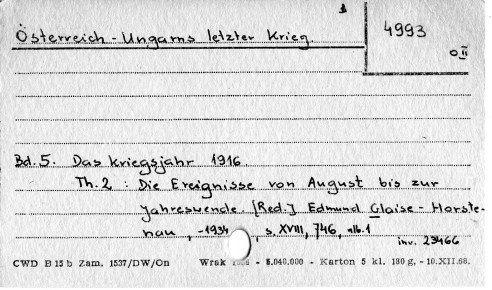 Österreich-Ungarns letzter Krieg.
4993
O II
Bd. 5. Das Kriegsjahr 1916
Th. 2 : Die Ereignisse von August bis zur
Jahreswende. [Red.] Edmund Glaise-Horste-
nau, -1934, s. XVIII, 746, alb. 1
inv. 23466
CWD B 15 b Zam. 1537/DW/On Wrak - 5.040.000 - Karton 5 kl. 180 g, - 10.XII.68.